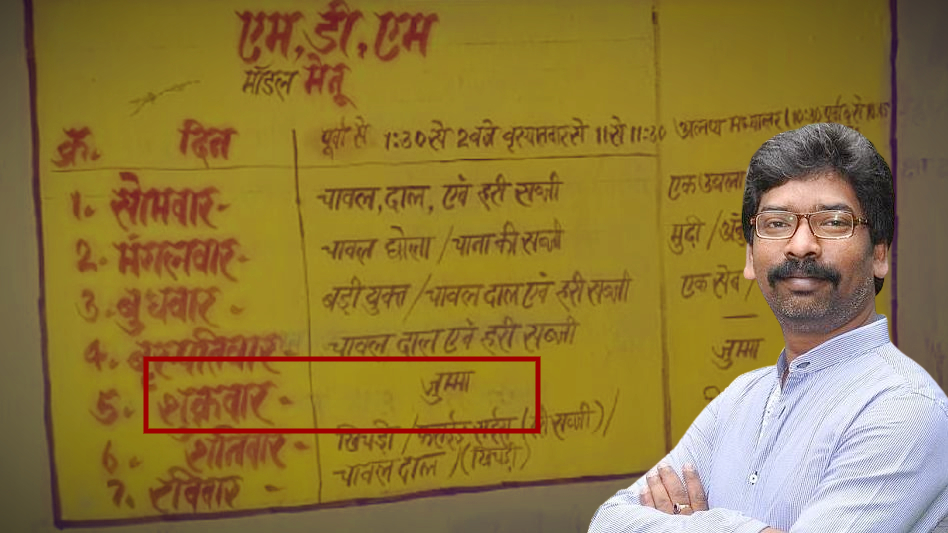 एम, डी, एम
मॉडल मेनू
क्र. दिन पूर्वा से 1:30 से 2 बजे बृहस्पतिवार से 11 से 11:30
1. सोमवार - चावल, दाल, एवं हरी सब्जी एक उबला
2. मंगलवार - चावल छोला / चाना की सब्जी मुढ़ी /
3. बुधवार - बड़ी युक्त / चावल दाल एवं हरी सब्जी एक सेब /
4. बृहस्पतिवार - चावल दाल एवं हरी सब्जी
5. शुक्रवार - जुम्मा जुम्मा
6. शनिवार - खिचड़ी /
7. रविवार - चावल दाल / (खिचड़ी)